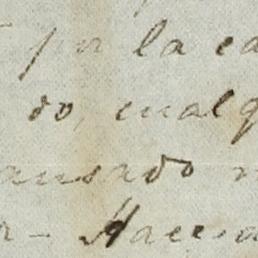 por la ca
do, cualq
ausado
r- Hacie